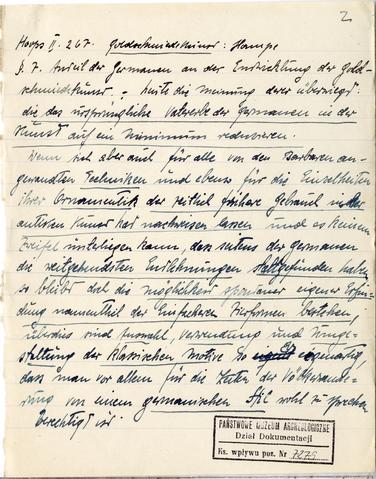 2
Hoops II. 267. Goldschmiedekunst: Hampe
§. 7. Anteil der Germanen an der Entwicklung der Gold-
schmiedekunst, – heute die Meinung derer überwiegt:
die das ursprüngliche der Germanen in der
Kunst auf ein Minimum reduzieren.
Wenn sich aber auch für alle von den Barbaren an-
gewandten Techniken und ebenso für die Einzelheiten
ihrer Ornamentik der zeitlich frühere Gebrauch in der
antiken Kunst hat nachweisen lassen und es keinem
Zweifel unterliegen kann, dass seitens der Germanen
die weitgehendsten Entlehnungen stattgefunden haben,
so bleibt doch die Möglichkeit spontaner eigener Erfin-
dung namentlich der einfacheren Zierformen bestehen,
überdies sind Auswahl, Verwendung und Umge-
staltung der klassischen Motive so eigenartig,
dass man vor allem für die Zeiten der Völkerwande-
rung von einem germanischen Stil wohl zu sprechen
berechtigt ist.
PAŃSTWOWE MUZEUM ARCHEOLOGICZNE
Dział Dokumentacji
Ks. wpływu poz. Nr 7275